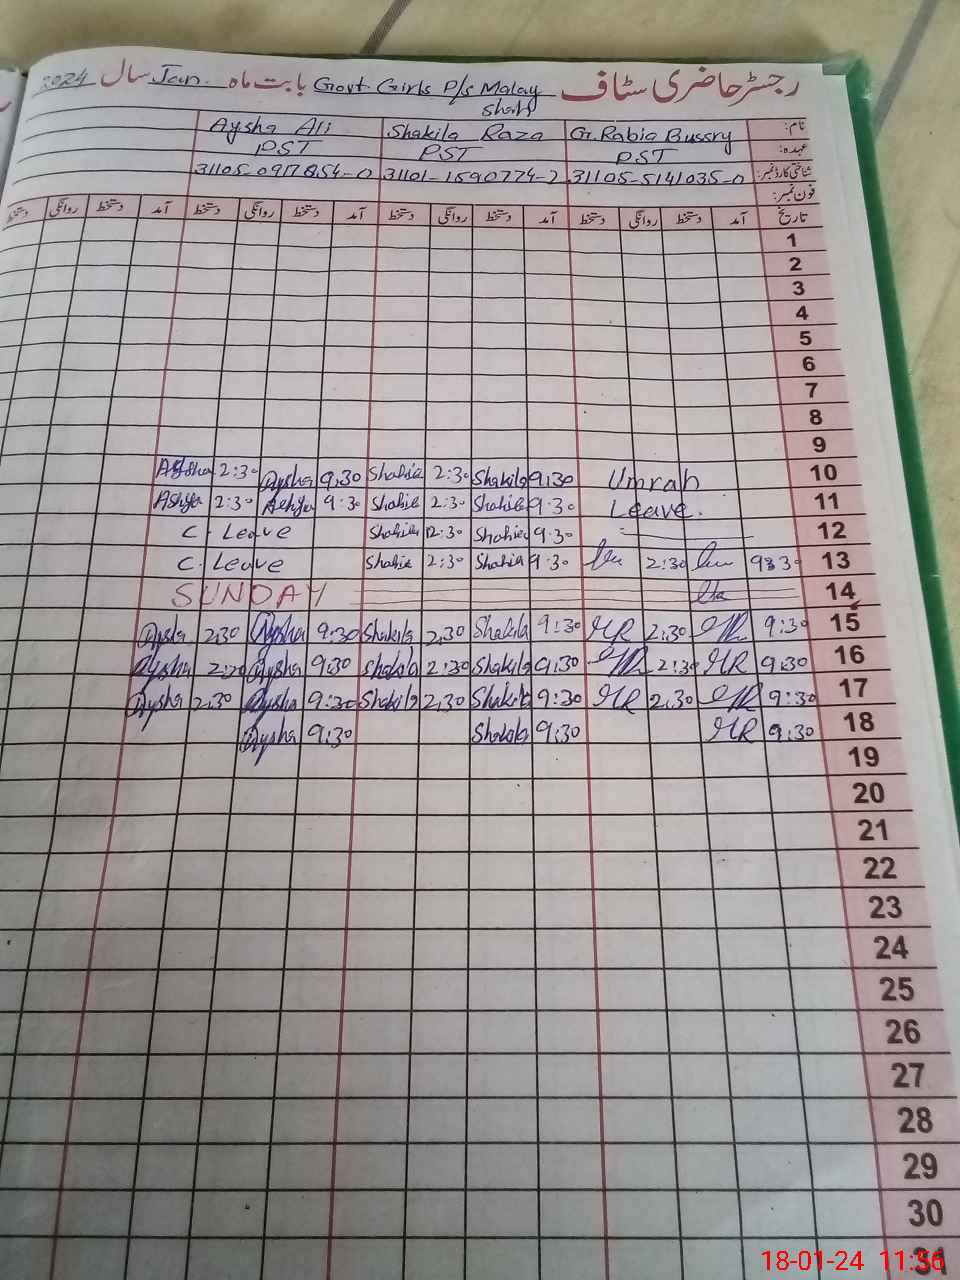 رجسٹر حاضری سٹاف Govt. Girls P/s Malay Shah بابت ماہ Jan. سال 2024
نام: G.Rabia Bussry Shakila Raza Aysha Ali
عہدہ: PST PST PST
شناختی کارڈ نمبر: 31105-5141035-0 31101-1590774-2 31105-0917854-0
فون نمبر:
تاریخ آمد دستخط روانگی دستخط آمد دستخط روانگی دستخط آمد دستخط روانگی دستخط آمد دستخط روانگی دستخط
1
2
3
4
5
6
7
8
9
Aysha 2:30 Aysha 9:30 Shakila 2:30 Shakila 9:30 Umrah 10
2:30 9:30 2:30 9:30 Leave. 11
C. Leave 12:30 9:30 12
C. Leave 2:30 9:30 2:30 9:30 13
SUNDAY 14
Aysha 2:30 Aysha 9:30 Shakila 2:30 Shakila 9:30 GR 2:30 GR 9:30 15
Aysha 2:30 Aysha 9:30 Shakila 2:30 Shakila 9:30 GR 2:30 GR 9:30 16
Aysha 2:30 Aysha 9:30 Shakila 2:30 Shakila 9:30 GR 2:30 GR 9:30 17
Aysha 9:30 Shakila 9:30 GR 9:30 18
19
20
21
22
23
24
25
26
27
28
29
30
31
18-01-24 11:36